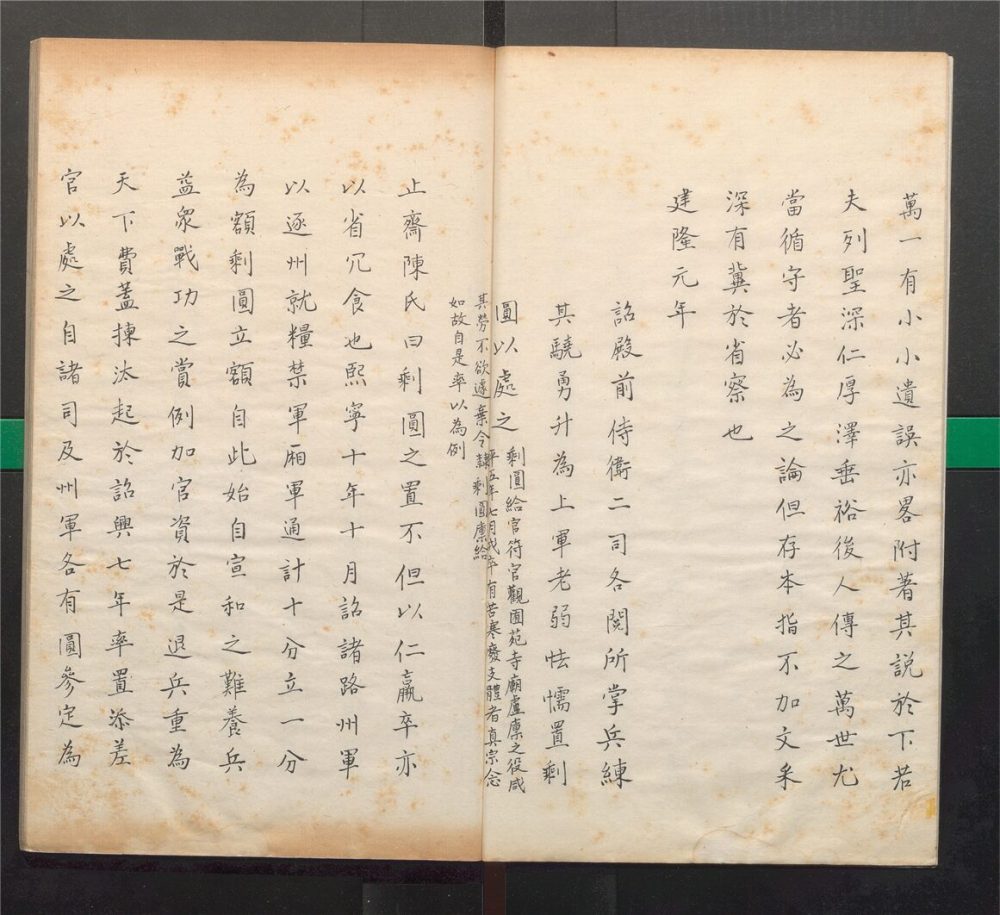 萬一有小小遺誤亦畧附著其説於下若
夫列聖深仁厚澤垂裕後人傳之萬世尤
當循守者必為之論但存本指不加文采
深有冀於省察也
建隆元年
詔殿前侍衛二司各閱所掌兵練
其驍勇升為上軍老弱怯懦置剩
圓以處之
剩圓給官符官觀園苑寺廟盧廪之役咸
平五年七月戎卒有苦寒廢支體者真宗念
其勞不欲遽棄令隸剩圓廪給
如故自是率以為例
止齋陳氏曰剩圓之置不但以仁羸卒亦
以省冗食也熙寧十年十月詔諸路州軍
以逐州就糧禁軍廂軍通計十分立一分
為額剩圓立額自此始自宣和之難養兵
益衆戰功之賞例加官資於是退兵重為
天下費蓋揀汰起於詔興七年率置添差
官以處之自諸司及州軍各有圓參定為